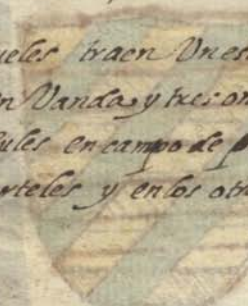 ueles traen Vn es
n Vanda, y tres on
ules en campo de p
rteles y en los otr